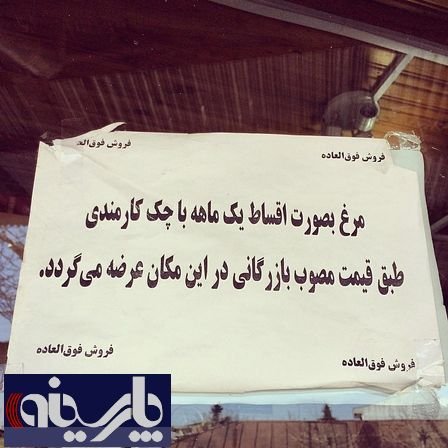 فروش فوق‌العاده
فروش فوق‌العاده
مرغ بصورت اقساط یک ماهه با چک کارمندی
طبق قیمت مصوب بازرگانی در این مکان عرضه می‌گردد.
فروش فوق‌العاده
فروش فوق‌العاده
پارسینه